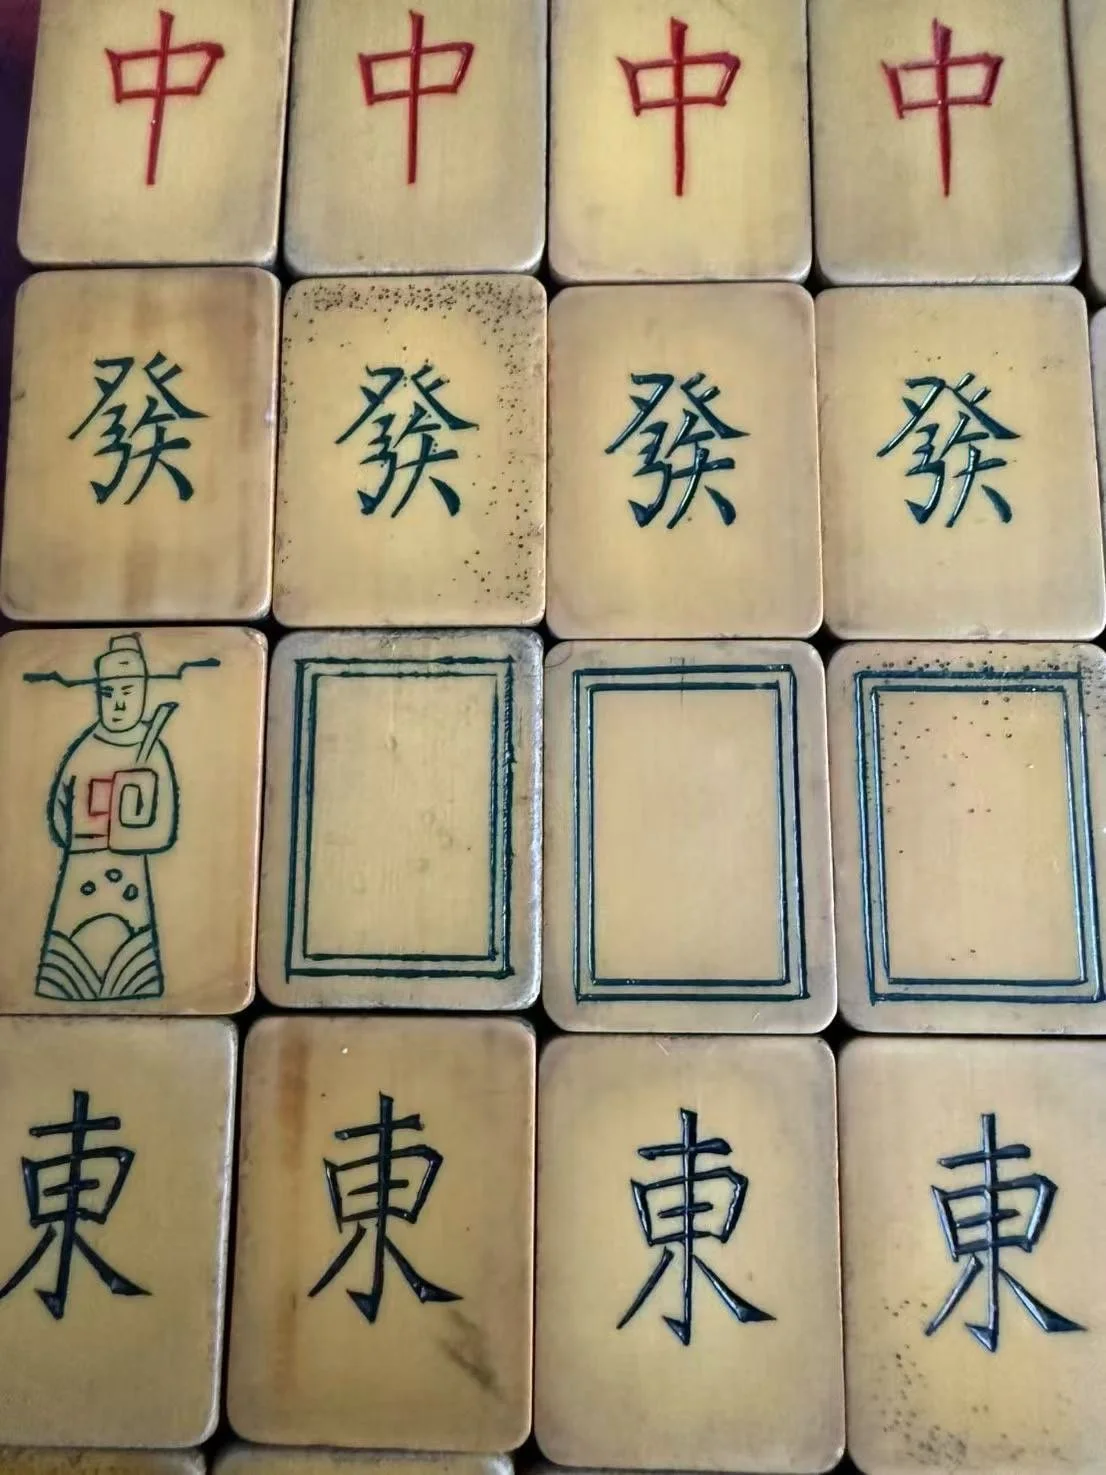 中 中 中 中
發 發 發 發
東 東 東 東